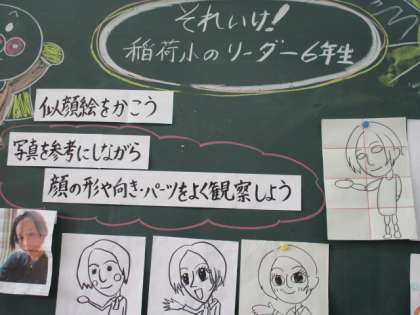 それいけ!
稲荷小のリーダー6年生
似顔絵をかこう
写真を参考にしながら
顔の形や向き・パーツをよく観察しよう